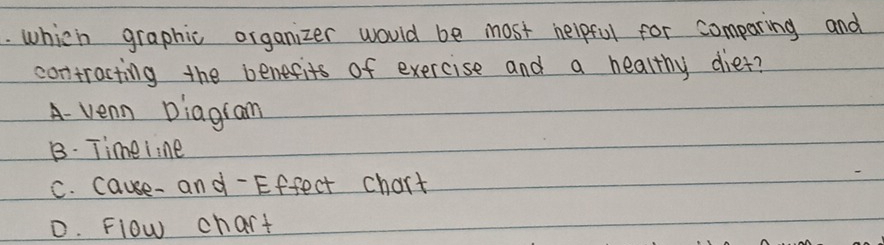 . Which graphic organizer would be most helpful for comparing and
contracting the benefits of exercise and a healthy diet?
A- Venn Diagram
B. Timeline
C. Cause- and -Effect chart
D. Flow chart